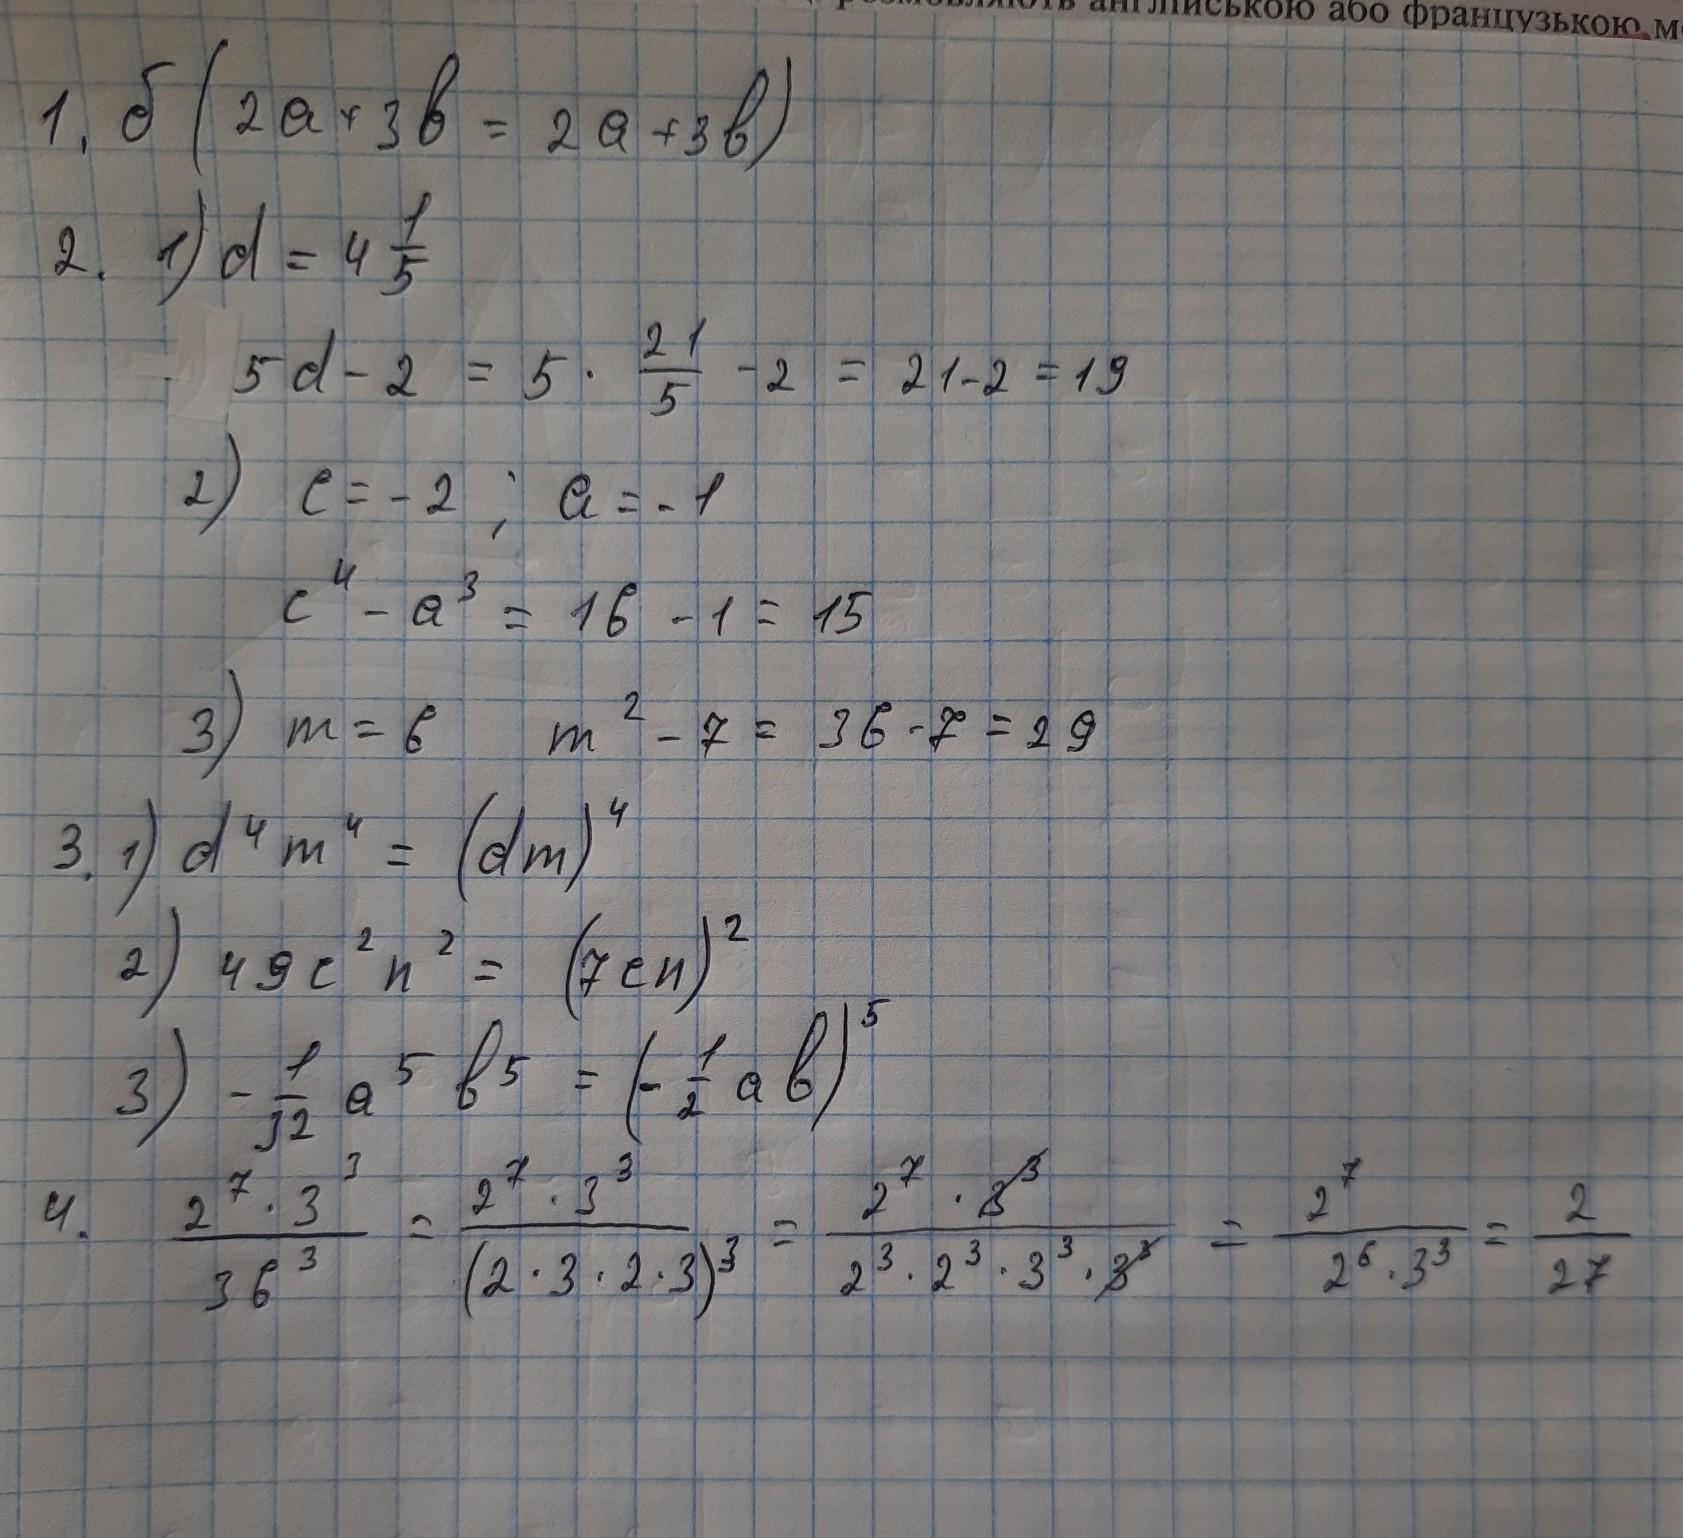 розмовляють англійською або французькою
1. б (2a+3b = 2a+3b)
2. 1) d = 4 1/5
5d - 2 = 5 · 21/5 - 2 = 21-2 = 19
2) c = -2 ; a = -1
c⁴ - a³ = 16 - 1 = 15
3) m = 6 m² - 7 = 36 - 7 = 29
3. 1) d⁴m⁴ = (dm)⁴
2) 49c²n² = (7cn)²
3) - 1/32 a⁵ b⁵ = (- 1/2 ab)⁵
4. (2⁷ · 3³)/(36³) = (2⁷ · 3³)/((2 · 3 · 2 · 3)³) = (2⁷ · 3³)/(2³ · 2³ · 3³ · 3³) = 2⁷/(2⁶ · 3³) = 2/27